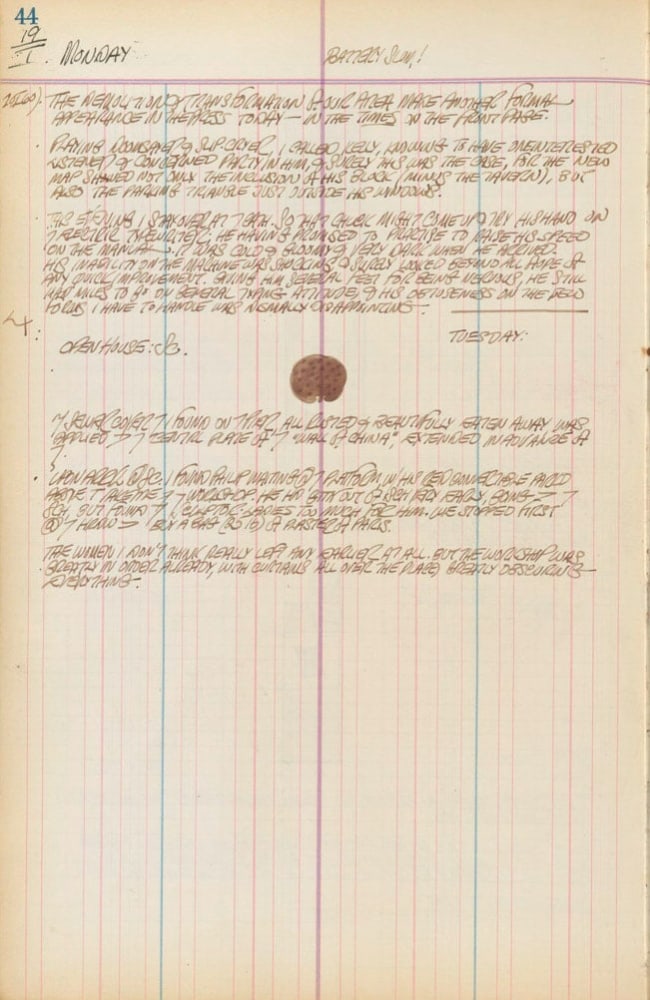 44
19
1. MONDAY
BATTERY SLUM!
THE DEMOLITION & TRANSFORMATION OF OUR AREA MAKE ANOTHER FORMAL
APPEARANCE IN THE PRESS TODAY — IN THE TIMES ON THE FRONT PAGE.
PLAYING & , I CALLED KELLY, KNOWING TO HAVE ONE INTERESTED
LISTENER & CONCERNED PARTY IN HIM, & SURELY THIS WAS THE CASE, FOR THE NEW
MAP SHOWED NOT ONLY THE INCLUSION OF HIS BLOCK (MINUS THE TAVERN), BUT
ALSO THE PARKING TRIANGLE JUST OUTSIDE HIS WINDOWS.
THIS EVENING I STAY OVER AT SO THAT CHUCK MIGHT COME UP TO TRY HIS HAND ON
7 ELECTRIC TYPEWRITER: HE HAVING PROMISED TO PRACTISE TO RAISE HIS SPEED
ON THE MANUAL. IT WAS COLD & GLOOMY & VERY DARK WHEN HE ARRIVED.
HIS INABILITY ON THE MACHINE WAS SHOCKING & SURELY LOOKED BEYOND ALL HOPE OF
ANY QUICK IMPROVEMENT. GIVING HIM SEVERAL FEET FOR BEING NERVOUS, HE STILL
HAD MILES TO GO ON GENERAL TYPING ATTITUDE, & HIS OBTUSENESS ON THE
FORMS I HAVE TO HANDLE WAS DISMALLY DISAPPOINTING.
TUESDAY:
OPEN HOUSE: SC.
7 SEWER COVER 7 I FOUND ON 7 PIER, ALL RUSTED & BEAUTIFULLY EATEN AWAY, WAS
APPLIED → 7 CENTRAL PLATE OF 7 "WALL OF CHINA", EXTENDED IN ADVANCE OF
7.
UPON ARR. @ SC. I FOUND PHILIP WAITING @ 7 PLATFORM W/ HIS RED CONVERTIBLE PARKED
ABOVE T TAKE ME → 7 WORKSHOP. HE HAD GOTTEN OUT OF VERY EARLY, GOING → 7
BUT FOUND 7 SCULPTOR-LADIES TOO MUCH FOR HIM. WE STOPPED FIRST
@ 7 → BUY A BAG OF PLASTER OF PARIS.
THE WOMEN I DON'T THINK REALLY LEFT ANY EARLIER AT ALL. BUT THE WORKSHOP WAS
GREATLY IN ORDER ALREADY, WITH CURTAINS ALL OVER THE PLACE, GREATLY OBSCURING
EVERYTHING.